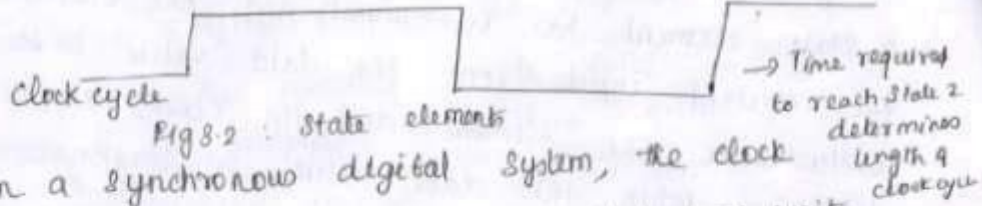 → Time required
to reach State 2
determines
length of
clock cycle
Clock cycle
Fig 3.2 : State elements
n a synchronous digital system, the clock